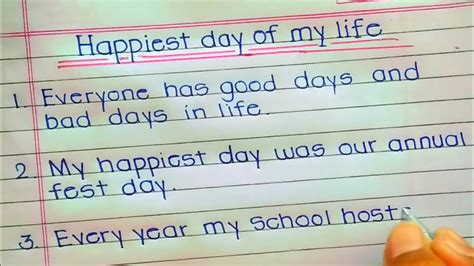 Happiest day of my life
1. Everyone has good days and
bad days in life.
2. My happiest day was our annual
fest day.
3. Every year my school host